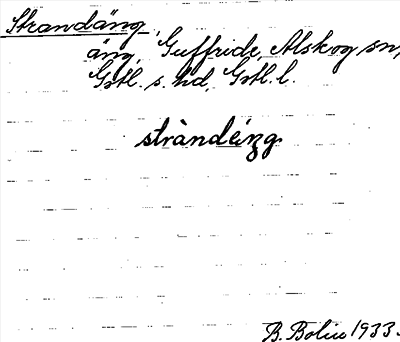 Strandäng,
äng, Guffride, Alskog sn,
Gotl. s. hd, Gotl. l.
stràndéŋg
B. Bolin 1933.